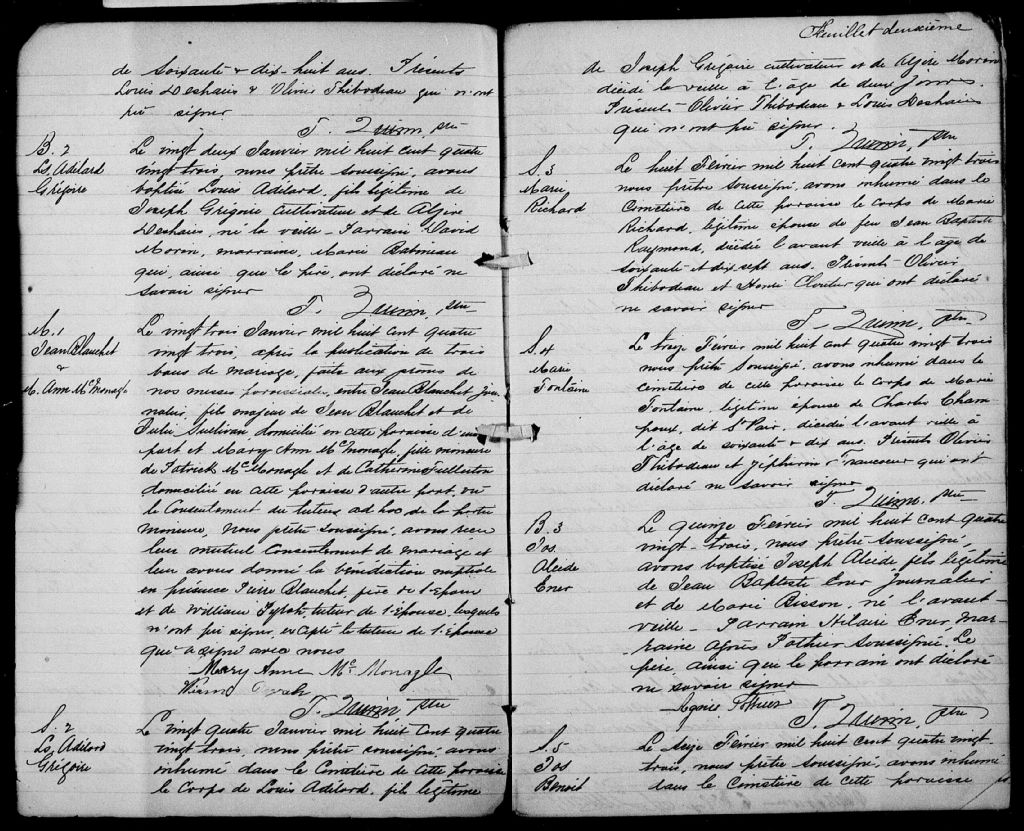 de soixante & dix-huit ans. Présents
Louis Deshaies & Olivier Thibodeau qui n'ont
pu signer
T. Quinn, ptre
B. 2
Ls Adélard
Grégoire
Le vingt deux Janvier mil huit cent quatre
vingt trois, nous prêtre soussigné, avons
baptisé Louis Adélard, fils légitime de
Joseph Grégoire cultivateur et de Alzire
Deshaies, né la veille - Parrain David
Morin, marraine, Marie Babineau
qui, ainsi que le père, ont déclaré ne
savoir signer
T. Quinn, ptre
M. 1
Jean Blanchet
&
M. Ann McMonagle
Le vingt trois Janvier mil huit cent quatre
vingt trois, après la publication de trois
bans de mariage, faite aux prônes de
nos messes paroissiales, entre Jean Blanchet jour-
nalier, fils majeur de Jean Blanchet et de
Julie Sullivan domicilié en cette paroisse d'une
part et Mary Ann McMonagle, fille mineure
de Patrick McMonagle et de Catherine
domiciliée en cette paroisse d'autre part, vu
le Consentement du tuteur ad hoc de la partie
mineure, Nous ptetre soussigné, avons recu
leur mutuel Consentement de mariage et
leur avons donné la bénédiction nuptiale
en présence Pierre Blanchet, père de l'époux
et de William tuteur de l'épouse, lesquels
n'ont pu signer, excepté le tuteur de l'épouse
qui a signé avec nous
Mary Anne McMonagle
T. Quinn ptre
S. 2
Ls Adélard
Grégoire
Le vingt quatre Janvier mil huit cent quatre
vingt trois, nous prêtre soussigné avons
inhumé dans le Cimetière de cette paroisse
le Corps de Louis Adélard, fils légitime
Feuillet deuxième
de Joseph Grégoire cultivateur et de Alzire Morin
décédé la veille à l'âge de deux jours.
Présents Olivier Thibodeau & Louis Deshaies
qui n'ont pu signer.
T. Quinn, ptre
S. 3
Marie
Richard
Le huit Février mil huit cent quatre vingt trois
nous prêtre soussigné, avons inhumé dans le
Cimetière de cette paroisse le corps de Marie
Richard, légitime épouse de feu Jean Baptiste
Raymond, décédée l'avant veille à l'âge de
soixante et dix sept ans. Présents Olivier
Thibodeau et Honoré Cloutier qui ont déclaré
ne savoir signer
T. Quinn, ptre
S. 4
Marie
Fontaine
Le treize Février mil huit cent quatre vingt trois
nous prêtre soussigné, avons inhumé dans le
cimetière de cette paroisse le corps de Marie
Fontaine, légitime épouse de Charles Cham-
poux, dit St Pair, décédée l'avant veille à
l'âge de soixante & dix ans. Présents Olivier
Thibodeau et Zéphirin Francoeur qui ont
déclaré ne savoir signer
T. Quinn, ptre
B. 3
Jos
Alcide
Ener
Le quinze Février mil huit cent quatre
vingt-trois, nous prêtre soussigné,
avons baptisé Joseph Alcide, fils légitime
de Jean Baptiste Ener journalier
et de Marie Bisson, né l'avant
veille - Parrain Hilaire Ener, mar-
raine Agnès Pothier soussignée. Le
père ainsi que le parrain ont déclaré
ne savoir signer
Agnès Pothier
T. Quinn, ptre
S. 5
Jos
Benoit
Le seize Février mil huit cent quatre vingt-
trois, nous prêtre soussigné, avons inhumé
dans le Cimetière de cette paroisse